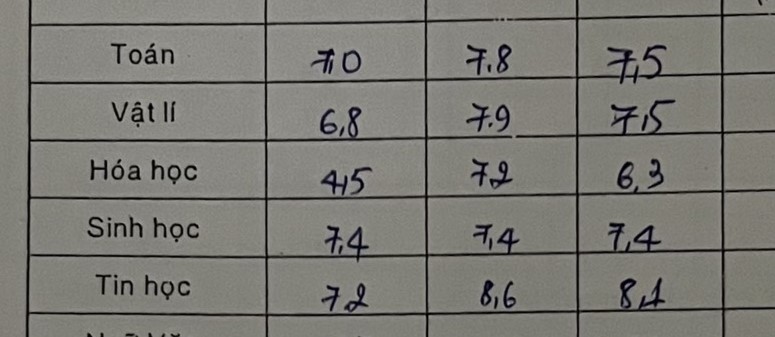 Toán 7,0 7.8 7,5
Vật lí 6,8 7.9 7,5
Hóa học 4,5 7.2 6,3
Sinh học 7,4 7,4 7,4
Tin học 7.2 8,6 8,1